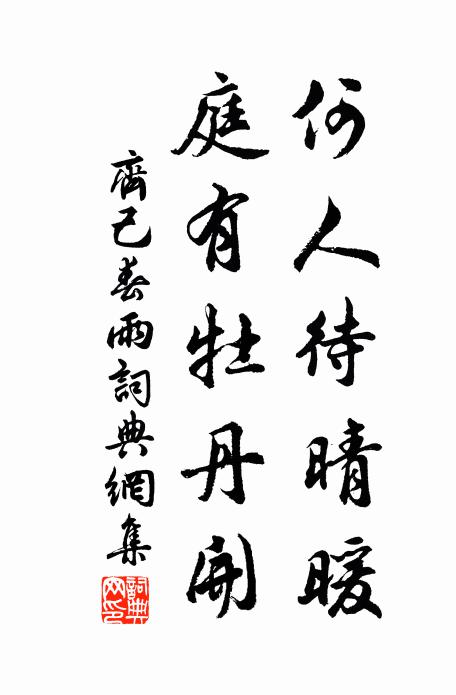 何人待晴暖
庭有牡丹開
齊己春雨詞典網集
詞典網印